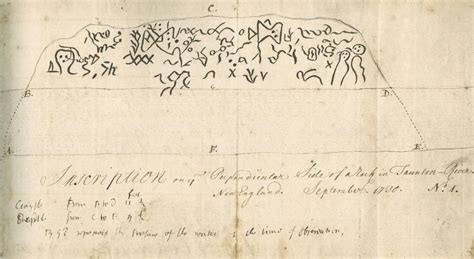 C.
B. D.
Inscription on yᵉ Perpendicular Side of a Rock in Taunton River
New England. September 1730. Nº 1.
feet
Length from to D 11 ½
Depth from C to 4 ½
represents the surface of the water at the time of observation.